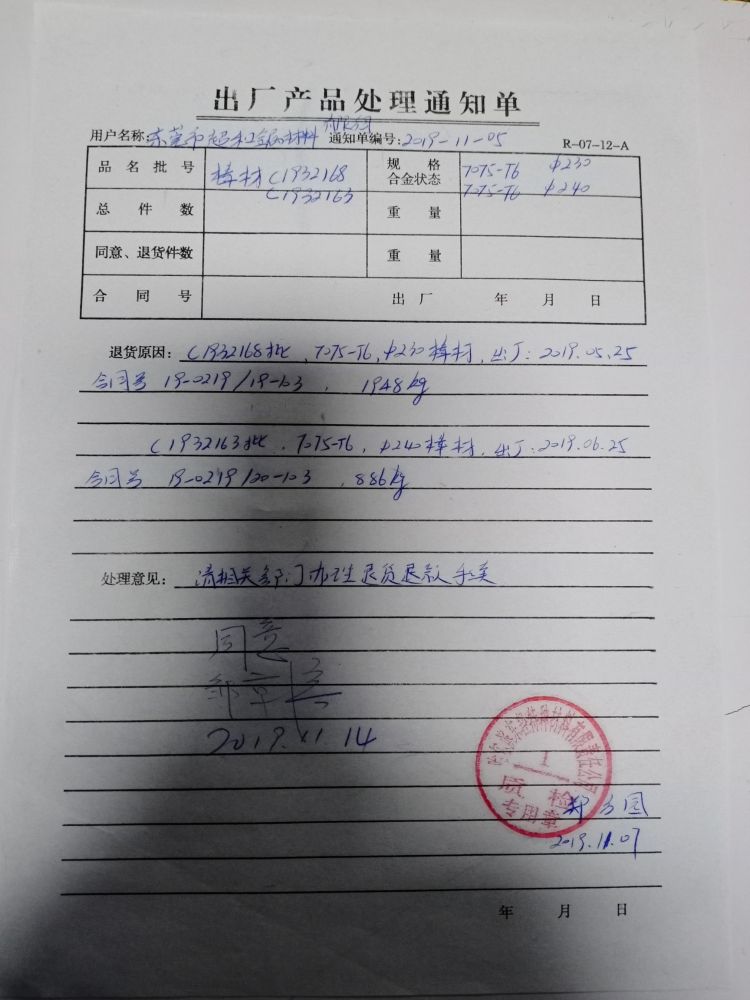 出厂产品处理通知单
用户名称:东莞市超和金属材料有限公司 通知单编号:2019-11-05 R-07-12-A
品名批号 棒材 C1932168 规格 合金状态 7075-T6 φ230
C1932163 7075-T6 φ240
总件数 重量
同意、退货件数 重量
合同号 出厂 年 月 日
退货原因: C1932168批,7075-T6,φ230棒材,出厂:2019.05.25
合同号 19-0219/19-103, 1948kg
C1932163批,7075-T6,φ240棒材,出厂:2019.06.25
合同号 19-0219/20-103,886kg
处理意见: 请相关部门办理退货退款手续
同意
2019.11.14
特种材料有限责任公司
1
质检
专用章
2019.11.07
年 月 日